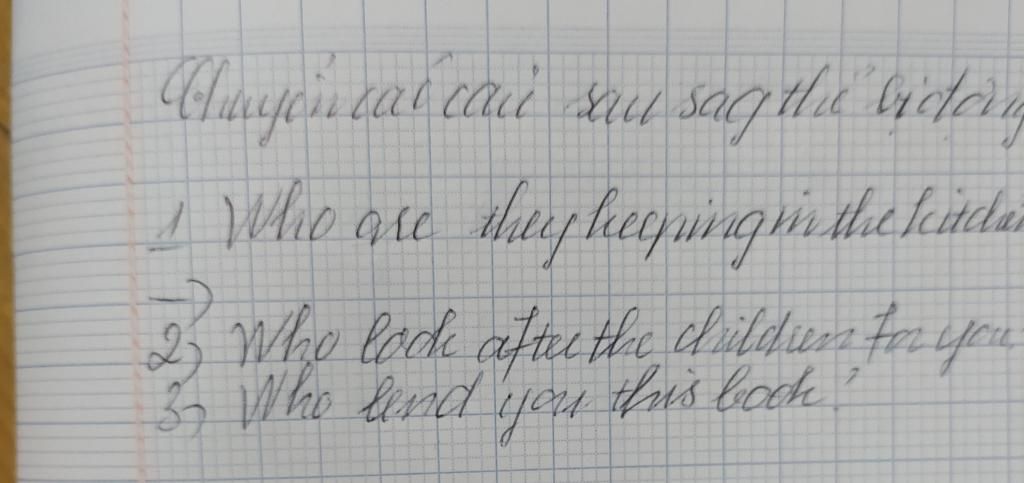 Chuyển các câu sau sag thể bị động
1 Who are they keeping in the kitchen
→
2) Who look after the children for you
3) Who lend you this book?